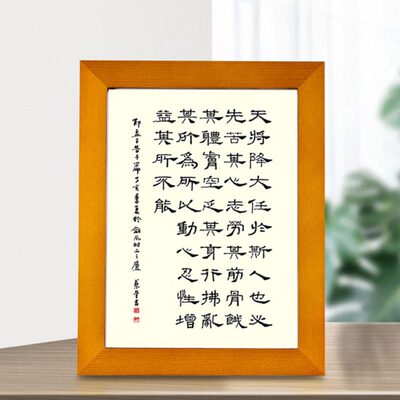 天將降大任於斯人也必
先苦其心志勞其筋骨餓
其體膚空乏其身行拂亂
其所為所以動心忍性增
益其所不能
孟子告子篇丁亥